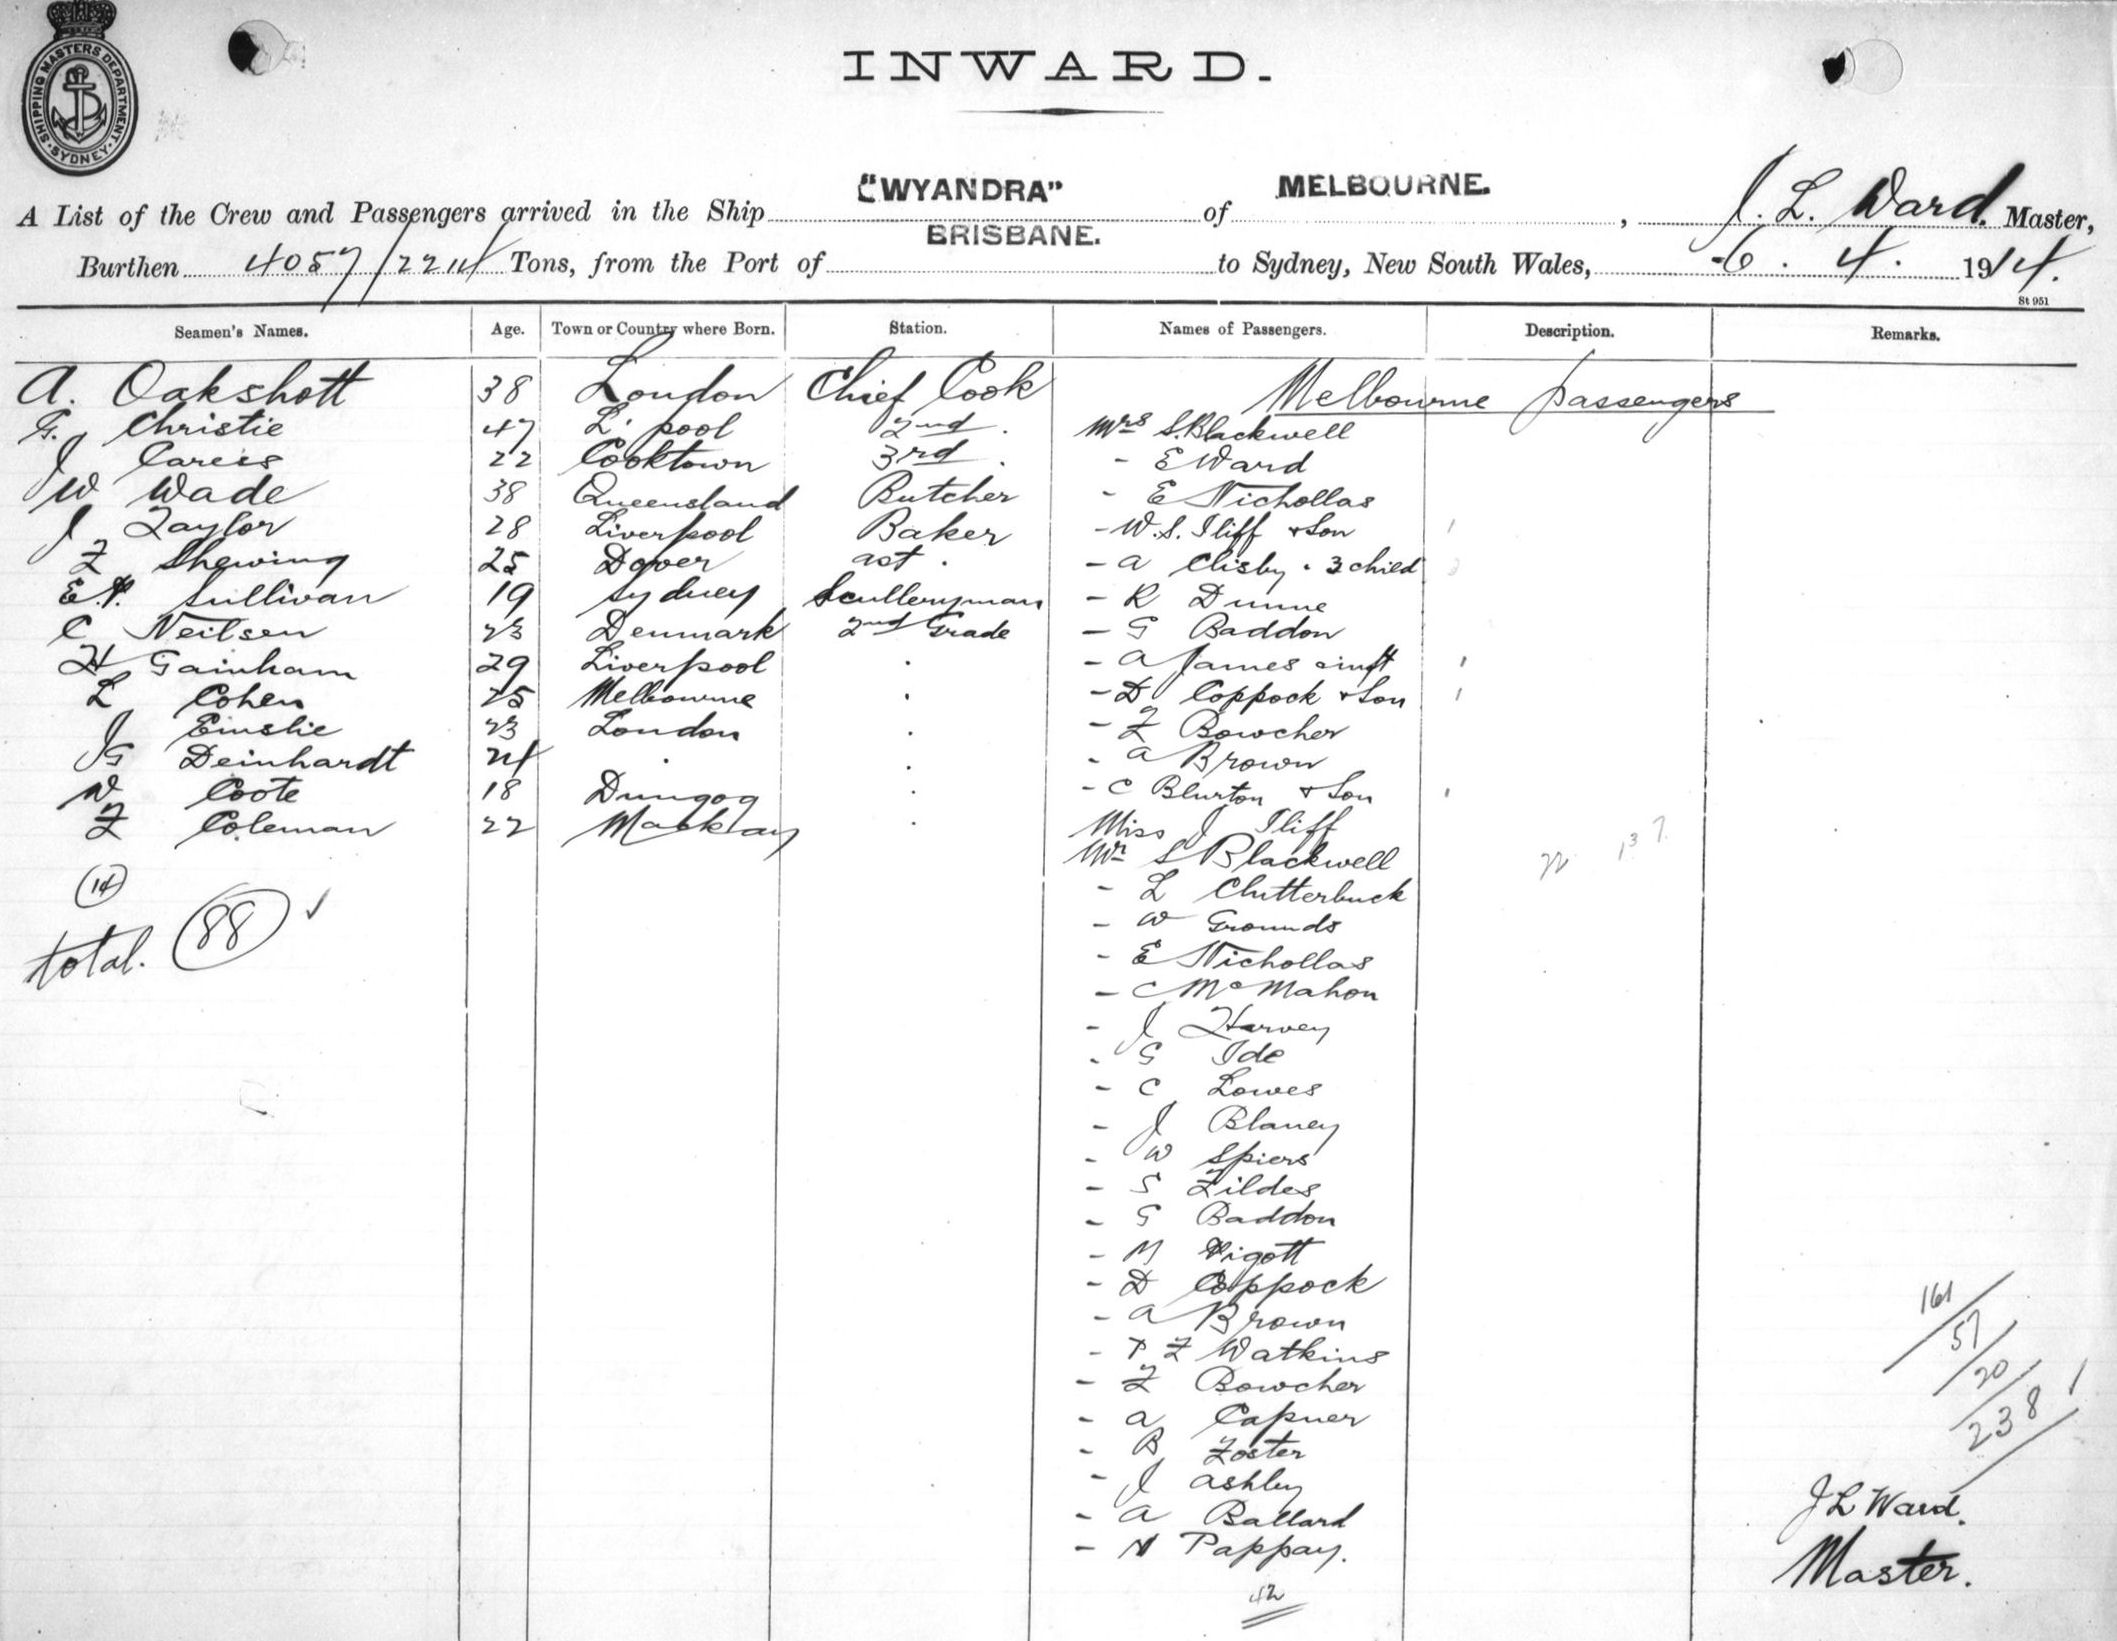 SHIPPING MASTERS DEPARTMENT · SYDNEY ·
INWARD.
A List of the Crew and Passengers arrived in the Ship "WYANDRA" of MELBOURNE. , J. L. Ward. Master,
Burthen 4057/2214 Tons, from the Port of BRISBANE. to Sydney, New South Wales, 6 . 4 . 1914.
St 951
Seamen's Names. Age. Town or Country where Born. Station. Names of Passengers. Description. Remarks.
A. Oakshott 38 London Chief Cook
G. Christie 47 L'pool 2nd .
J Careis 22 Cooktown 3rd .
W Wade 38 Queensland Butcher
J Taylor 28 Liverpool Baker
F Shewing 25 Dover ast .
E.P. Sullivan 19 Sydney Sculleryman
C Neilsen 23 Denmark 2nd Grade
H Gainham 29 Liverpool .
L Cohen 25 Melbourne .
J Emslie 23 London .
G Deinhardt 24 . .
W Coote 18 Dungog .
F Coleman 22 Mackay .
14
total. 88 ✓
Melbourne passengers
Mrs S. Blackwell
- E Ward
- E Nichollas
- W. S. Iliff + Son 1
- A Clisby . 3 child 3
- R Dunne
- G Baddon
- A James & inft 1
- D Coppock + Son 1
- F Bowcher
- A Brown
- C Blurton + Son 1
Miss J Iliff
Mr S Blackwell
- L Clutterbuck
- W Grounds
- E Nichollas
- C McMahon
- J Harvey
- G Ide
- C Lowes
- J Blaney
- W Spiers
- S Fildes
- G Baddon
- M Pigott
- D Coppock
- A Brown
- P F Watkins
- F Bowcher
- A Capner
- B Foster
- J Ashby
- A Ballard
- N Pappay.
42
137
161
57
20
238 ✓
J L Ward.
Master.